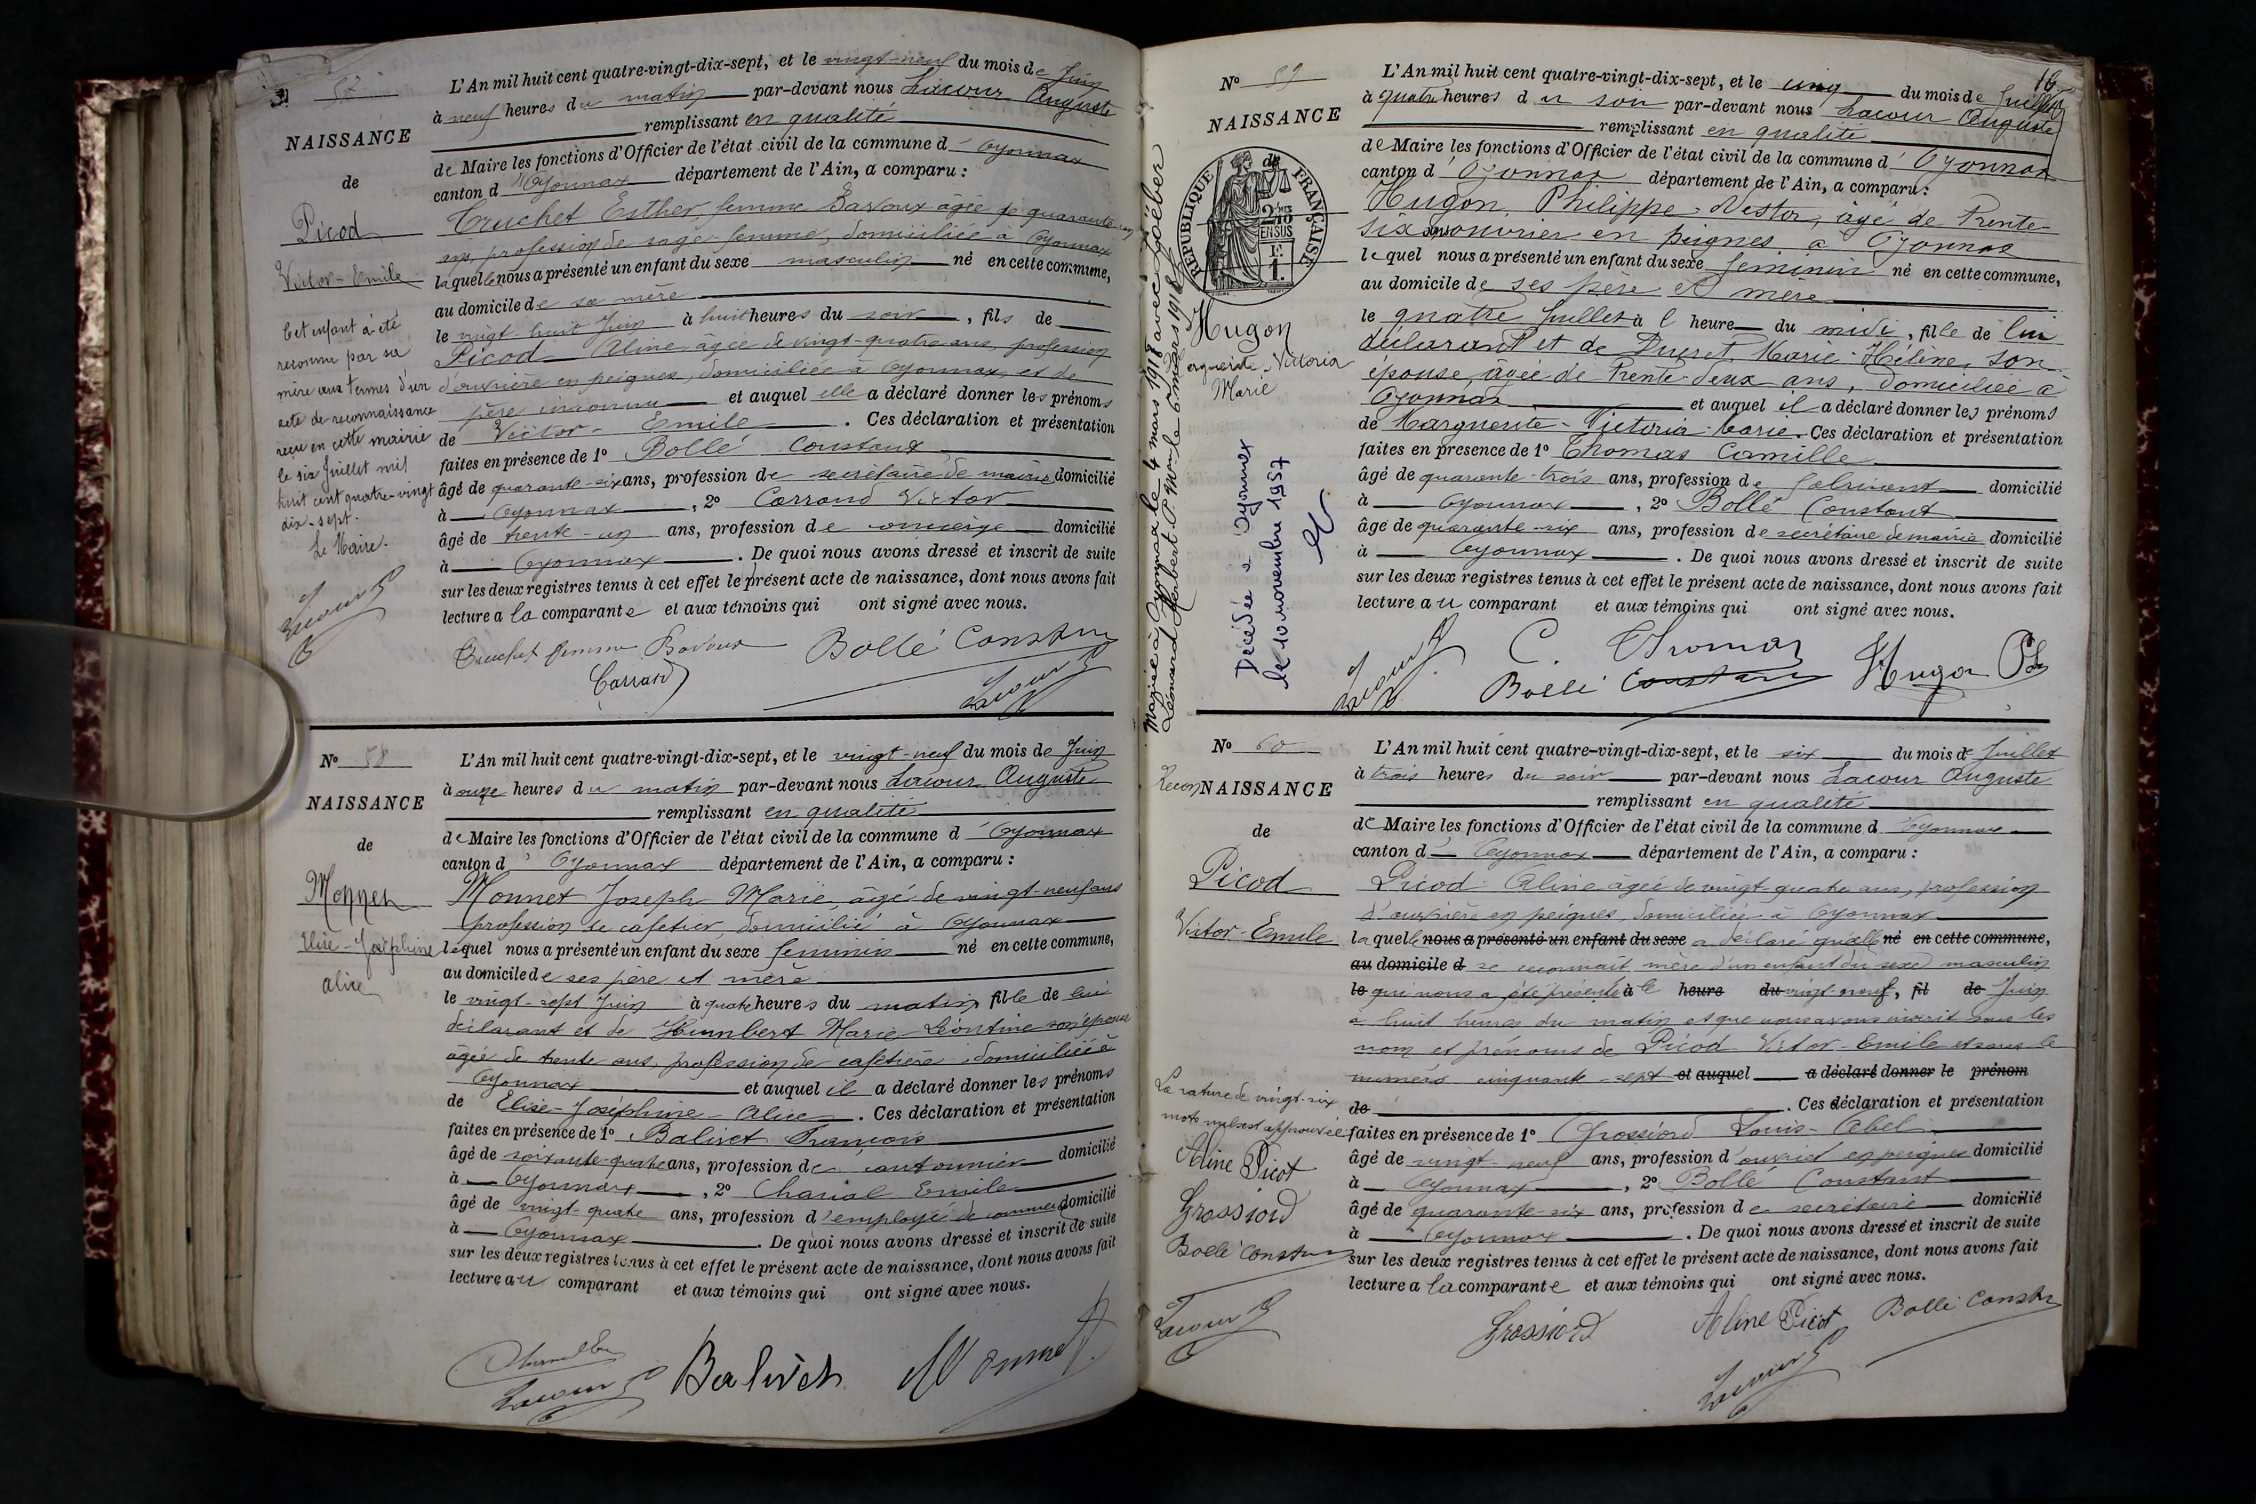 57
NAISSANCE
de
Picod
Victor-Emile
Cet enfant a été
reconnu par sa
mère aux termes d'un
acte de reconnaissance
reçu en cette mairie
le six Juillet mil
huit cent quatre-vingt
dix-sept.
Le Maire.
Lacour
L'An mil huit cent quatre-vingt-dix-sept, et le vingt-neuf du mois de Juin
à neuf heures du matin par-devant nous Lacour Auguste
remplissant en qualité
de Maire les fonctions d'Officier de l'état civil de la commune d'Oyonnax
canton d'Oyonnax département de l'Ain, a comparu :
Truchet Esther, femme Savoux âgée de quarante
ans, profession de sage-femme, domiciliée à Oyonnax
laquelle nous a présenté un enfant du sexe masculin né en cette commune,
au domicile de sa mère
le vingt-huit Juin à huit heures du soir, fils de
Picod Aline âgée de vingt-quatre ans, profession
d'ouvrière en peignes, domiciliée à Oyonnax, et de
père inconnu et auquel elle a déclaré donner les prénoms
de Victor-Emile. Ces déclaration et présentation
faites en présence de 1º Bollé Constant
âgé de quarante-six ans, profession de secrétaire de mairie domicilié
à Oyonnax, 2º Carrand Victor
âgé de trente-un ans, profession de concierge domicilié
à Oyonnax. De quoi nous avons dressé et inscrit de suite
sur les deux registres tenus à cet effet le présent acte de naissance, dont nous avons fait
lecture a la comparante et aux témoins qui ont signé avec nous.
Truchet femme Bollé Constant
Carrand Lacour
Nº 58
NAISSANCE
de
Monnet
Elise-Joséphine
Alice
L'An mil huit cent quatre-vingt-dix-sept, et le vingt-neuf du mois de Juin
à onze heures du matin par-devant nous Lacour Auguste
remplissant en qualité
de Maire les fonctions d'Officier de l'état civil de la commune d'Oyonnax
canton d'Oyonnax département de l'Ain, a comparu :
Monnet Joseph Marie, âgé de vingt-neuf ans
profession de cafetier, domicilié à Oyonnax
lequel nous a présenté un enfant du sexe féminin né en cette commune,
au domicile de ses père et mère
le vingt-sept Juin à quatre heures du matin, fille de lui
déclarant et de Humbert Marie Léontine son épouse
âgée de trente ans, profession de cafetière, domiciliée à
Oyonnax et auquel il a déclaré donner les prénoms
de Elise-Joséphine-Alice. Ces déclaration et présentation
faites en présence de 1º Balivet François
âgé de soixante-quatre ans, profession de cantonnier domicilié
à Oyonnax, 2º Charial Emile
âgé de vingt-quatre ans, profession d'employé de commerce domicilié
à Oyonnax. De quoi nous avons dressé et inscrit de suite
sur les deux registres tenus à cet effet le présent acte de naissance, dont nous avons fait
lecture au comparant et aux témoins qui ont signé avec nous.
Lacour Balivet Monnet
16
Nº 59
NAISSANCE
de
RÉPUBLIQUE FRANÇAISE
Hugon
Marguerite-Victoria
Marie
Mariée à Oyonnax le 4 mars 1918 avec Joëber
Léonard Herbert.
Décédée à Oyonnax
le 10 novembre 1957
L'An mil huit cent quatre-vingt-dix-sept, et le cinq du mois de Juillet
à quatre heures du soir par-devant nous Lacour Auguste
remplissant en qualité
de Maire les fonctions d'Officier de l'état civil de la commune d'Oyonnax
canton d'Oyonnax département de l'Ain, a comparu :
Hugon, Philippe-Nestor, âgé de trente-
six ans, ouvrier en peignes à Oyonnax
lequel nous a présenté un enfant du sexe féminin né en cette commune,
au domicile de ses père et mère
le quatre Juillet à l heure du midi, fille de lui
déclarant et de Ducret Marie-Hélène, son
épouse, âgée de trente-deux ans, domiciliée à
Oyonnax et auquel il a déclaré donner les prénoms
de Marguerite-Victoria-Marie. Ces déclaration et présentation
faites en présence de 1º Thomas Camille
âgé de quarante-trois ans, profession de fabricant domicilié
à Oyonnax, 2º Bollé Constant
âgé de quarante-six ans, profession de secrétaire de mairie domicilié
à Oyonnax. De quoi nous avons dressé et inscrit de suite
sur les deux registres tenus à cet effet le présent acte de naissance, dont nous avons fait
lecture au comparant et aux témoins qui ont signé avec nous.
Lacour C. Thomas
Bollé Constant Hugon Ph
Nº 60
Recon NAISSANCE
de
Picod
Victor-Emile
La rature de vingt-six
mots nuls est approuvée
Aline Picot
Grossiord
Bollé Constant
Lacour
L'An mil huit cent quatre-vingt-dix-sept, et le six du mois de Juillet
à trois heures du soir par-devant nous Lacour Auguste
remplissant en qualité
de Maire les fonctions d'Officier de l'état civil de la commune d'Oyonnax
canton d'Oyonnax département de l'Ain, a comparu :
Picod Aline âgée de vingt-quatre ans, profession
d'ouvrière en peignes, domiciliée à Oyonnax
laquelle nous a présenté un enfant du sexe a déclaré qu'elle né en cette commune,
au domicile d se reconnait mère d'un enfant du sexe masculin
le qui nous a été présenté à le heure du vingt-neuf, fil de Juin
à huit heures du matin et que nous avons inscrit sous les
nom et prénoms de Picod Victor-Emile et sous le
numéro cinquante-sept et auquel a déclaré donner le prénom
de. Ces déclaration et présentation
faites en présence de 1º Grossiord Louis-Abel
âgé de vingt-neuf ans, profession d'ouvrier en peignes domicilié
à Oyonnax, 2º Bollé Constant
âgé de quarante-six ans, profession de secrétaire domicilié
à Oyonnax. De quoi nous avons dressé et inscrit de suite
sur les deux registres tenus à cet effet le présent acte de naissance, dont nous avons fait
lecture a la comparante et aux témoins qui ont signé avec nous.
Grossiord Aline Picot Bollé Constant
Lacour